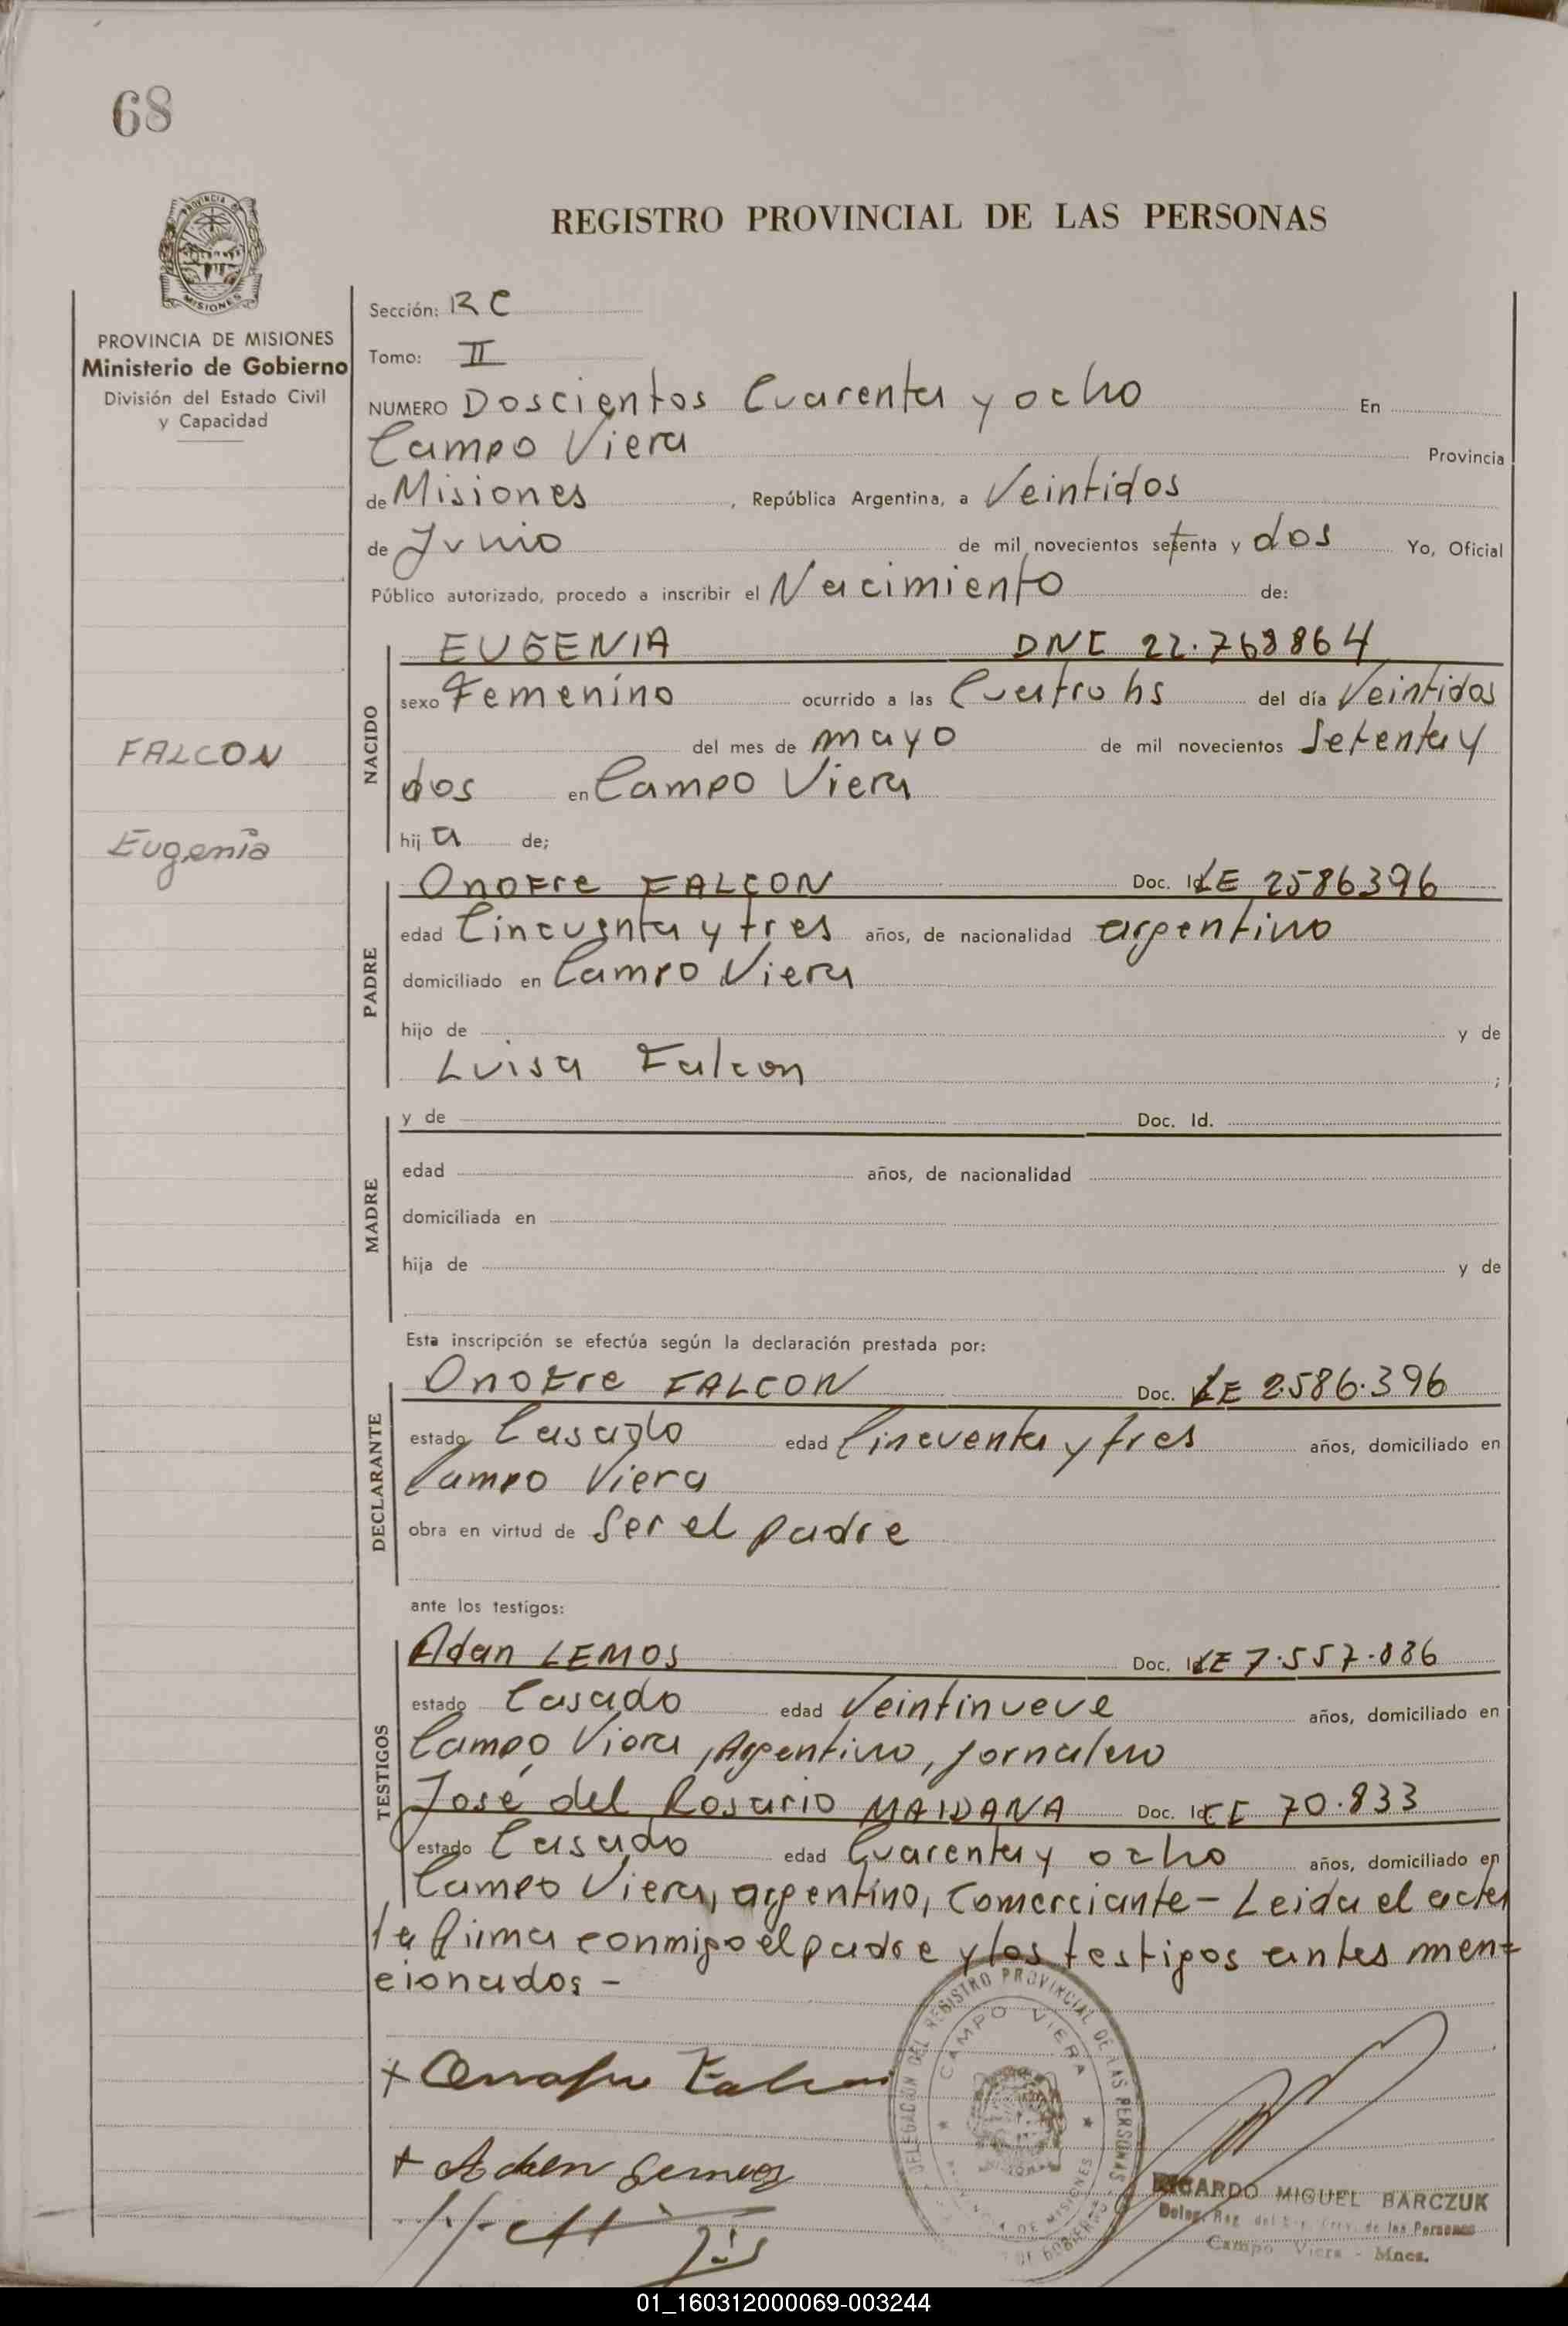 68
PROVINCIA DE MISIONES
Ministerio de Gobierno
División del Estado Civil
y Capacidad
FALCON
Eugenia
REGISTRO PROVINCIAL DE LAS PERSONAS
Sección: RC
Tomo: II
NUMERO Doscientos Cuarenta y ocho En
Campo Viera Provincia
de Misiones, República Argentina, a Veintidos
de Junio de mil novecientos setenta y dos Yo, Oficial
Público autorizado, procedo a inscribir el Nacimiento de:
NACIDO
EUGENIA DNI 22.768864
sexo Femenino ocurrido a las Cuatro hs del día Veintidos
del mes de mayo de mil novecientos Setenta y
dos en Campo Viera
hija de;
PADRE
Onofre FALCON Doc. Id LE 2586396
edad Cincuenta y tres años, de nacionalidad argentino
domiciliado en Campo Viera
hijo de y de
Luisa Falcon ;
MADRE
y de Doc. Id.
edad años, de nacionalidad
domiciliada en
hija de y de
Esta inscripción se efectúa según la declaración prestada por:
DECLARANTE
Onofre FALCON Doc. LE 2.586.396
estado Casado edad Cincuenta y tres años, domiciliado en
Campo Viera
obra en virtud de Ser el padre
ante los testigos:
TESTIGOS
Adan LEMOS Doc. Id LE 7.557.886
estado Casado edad Veintinueve años, domiciliado en
Campo Viera, Argentino, jornalero
José del Rosario MAIDANA Doc. Id CI 70.833
estado Casado edad Cuarenta y ocho años, domiciliado en
Campo Viera, argentino, Comerciante - Leida el acta
la firma conmigo el padre y los testigos antes men=
cionados -
+ Onofre Falcon
+ Adan Lemos
DELEGACION DEL REGISTRO PROVINCIAL DE LAS PERSONAS
CAMPO VIERA
DE MISIONES
RICARDO MIGUEL BARCZUK
Deleg. Reg. del Prov. de las Personas
Campo Viera - Mnes.
01_160312000069-003244